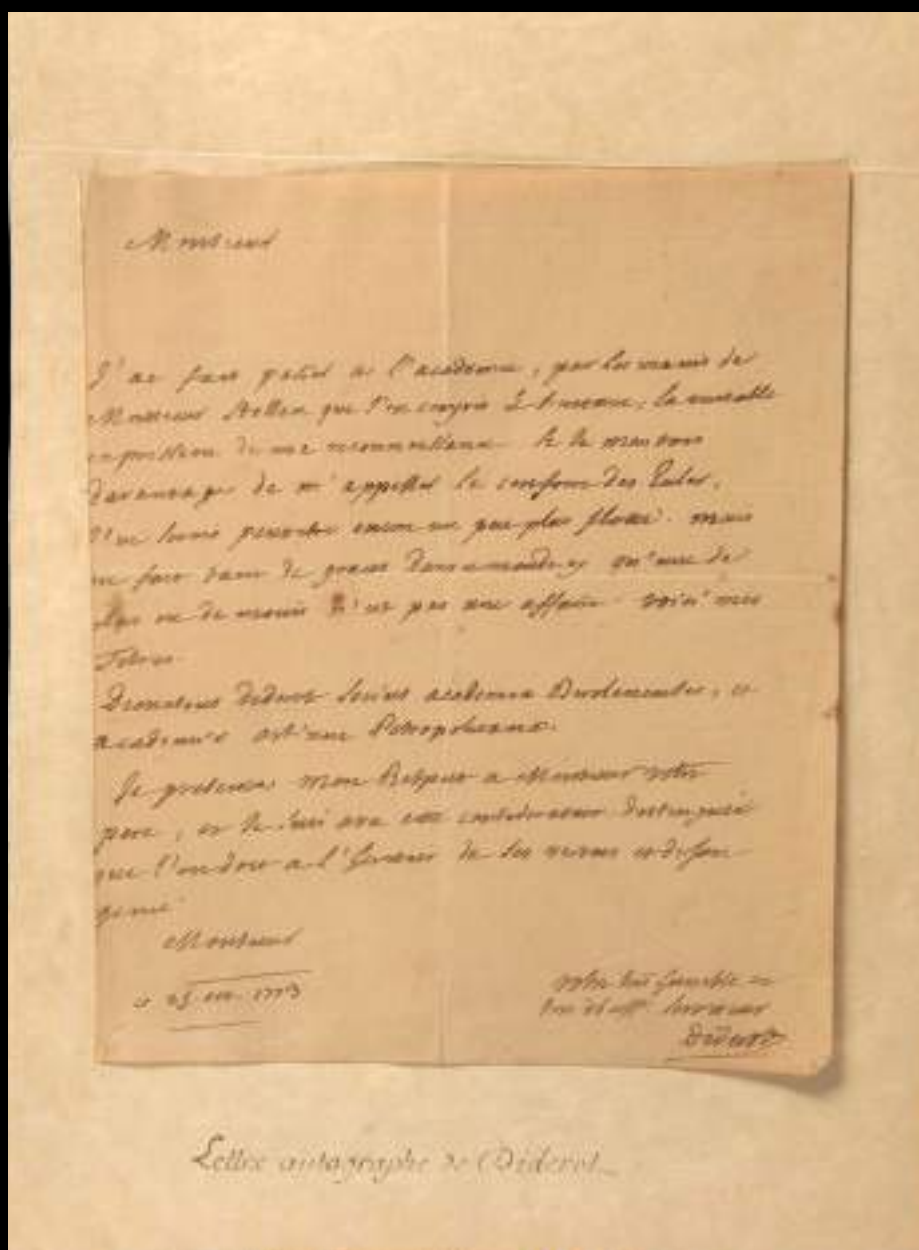 Monsieur
J'ai fait passer a l'academie, par les mains de
Monsieur que l'on envoyoit , la
expression de ma reconnoissance. Si je
davantage de m'appeller le confrere des Euler,
j'en serois peutetre encore un peu plus flatté. mais
de dans ce monde cy
de moins n'est pas une affaire. voici mes
Titres
Dionisius Diderot Socius academiæ Berolinensis, et
academiæ artium Petropolitanæ.
Je presente mon Respect a Monsieur votre
pere, et je suis avec cette consideration distinguée
que l'on doit a l' de ses et de son
genie
Monsieur
ce 25 1773
votre tres humble et
tres obeiss. serviteur
Diderot
Lettre autographe de Diderot